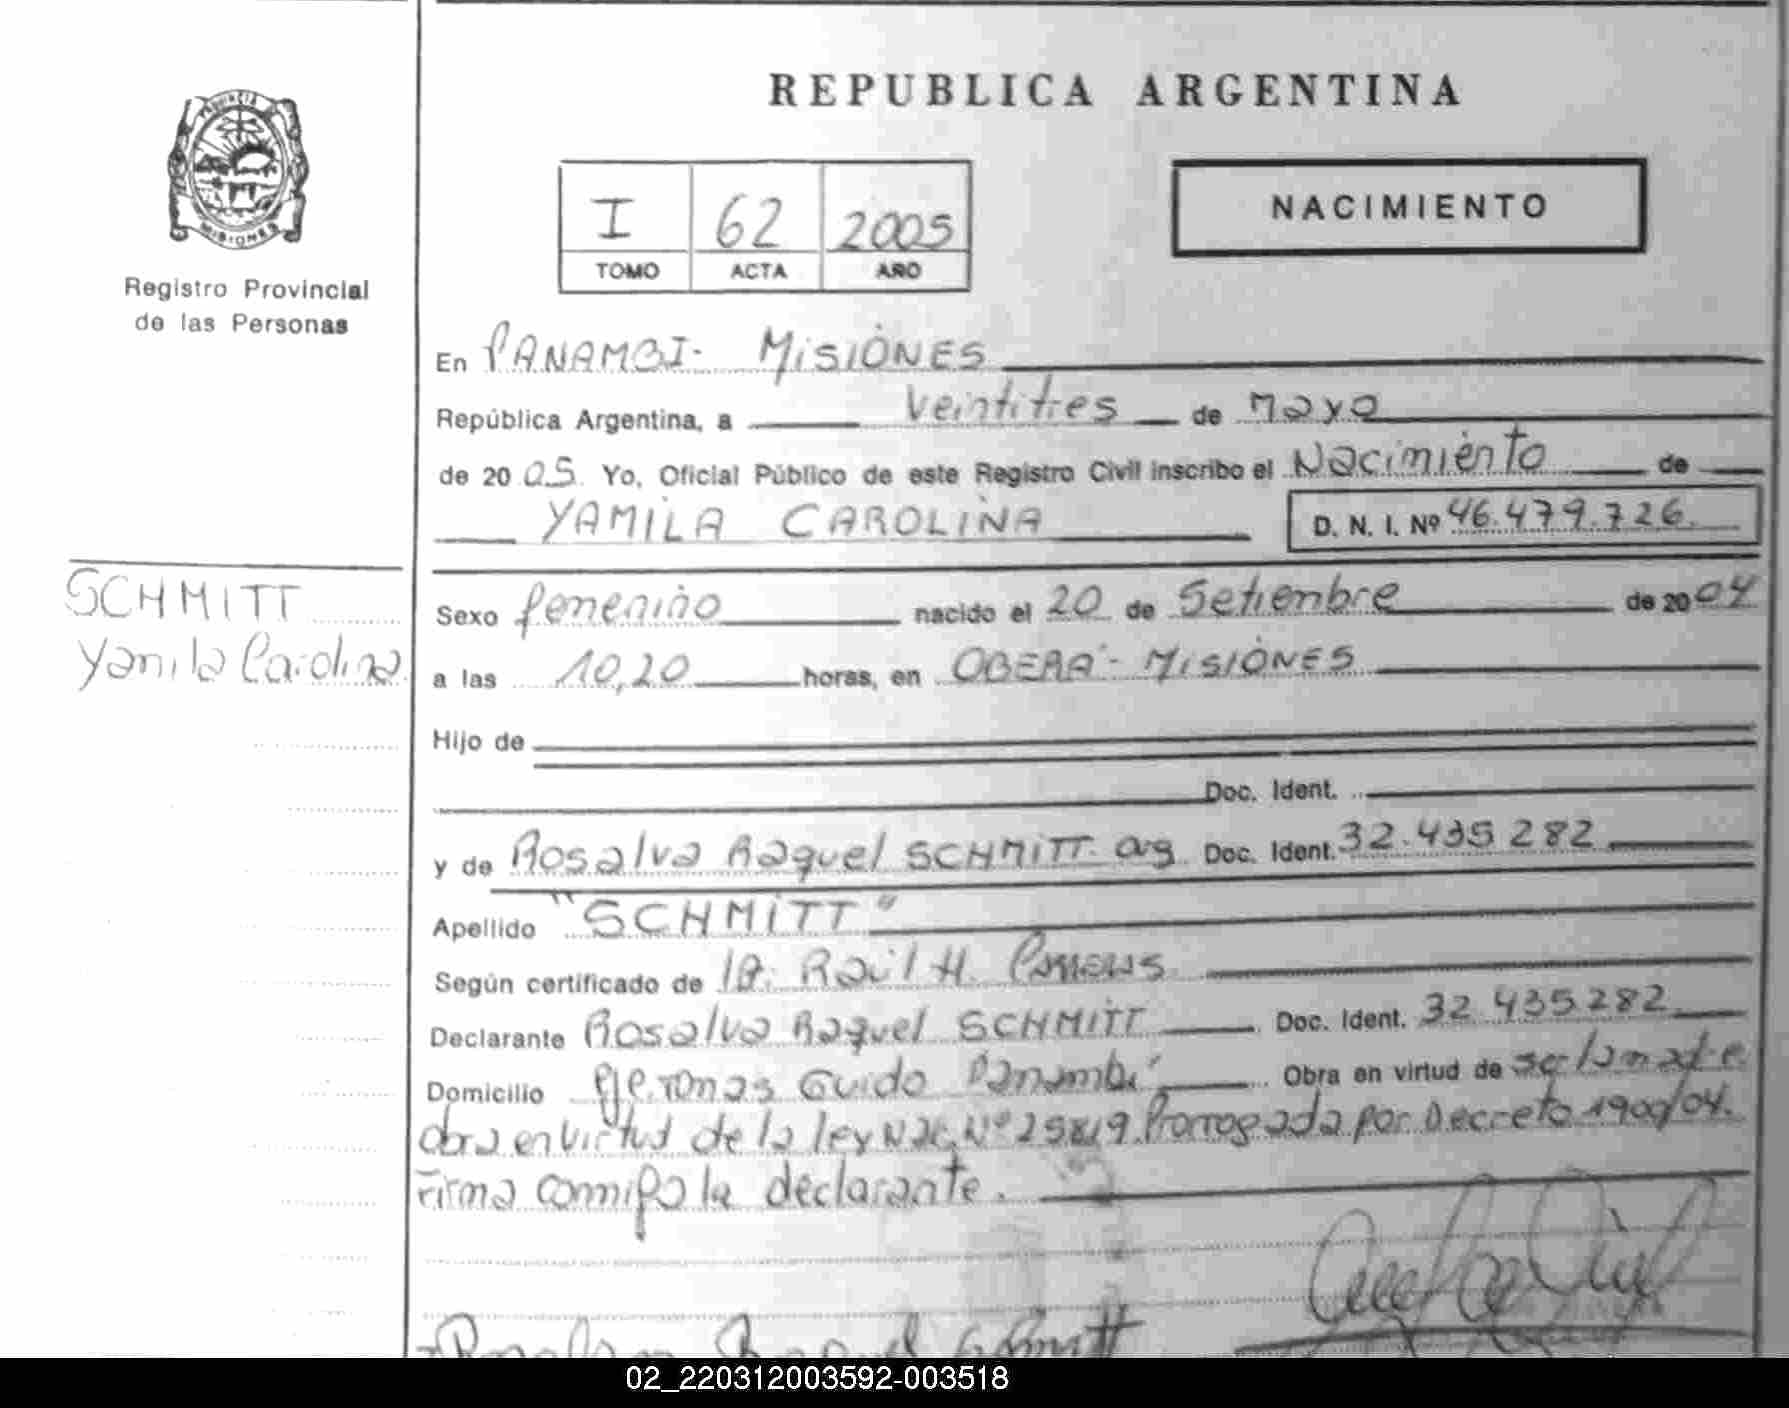 REPUBLICA ARGENTINA
PROVINCIA DE
MISIONES
Registro Provincial
de las Personas
I 62 2005
TOMO ACTA AÑO
NACIMIENTO
En PANAMBI- MISIONES
República Argentina, a veintitres de Mayo
de 2005. Yo, Oficial Público de este Registro Civil inscribo el Nacimiento de
YAMILA CAROLINA D. N. I. Nº 46.479.726.
SCHMITT
Yamila Carolina
Sexo femenino nacido el 20 de Setiembre de 2004
a las 10,20 horas, en OBERA - MISIONES
Hijo de
Doc. Ident.
y de Rosalva Raquel SCHMITT. arg. Doc. Ident. 32.435 282
Apellido "SCHMITT"
Según certificado de Raúl H.
Declarante Rosalva Raquel SCHMITT Doc. Ident. 32 435282
Domicilio Guido Panambí Obra en virtud de ser la madre
obra en virtud de la ley Nac. Nº 25819 Prorrogada por Decreto 1900/04.
Firma conmigo la declarante.
Rosalva Raquel Schmitt
02_220312003592-003518